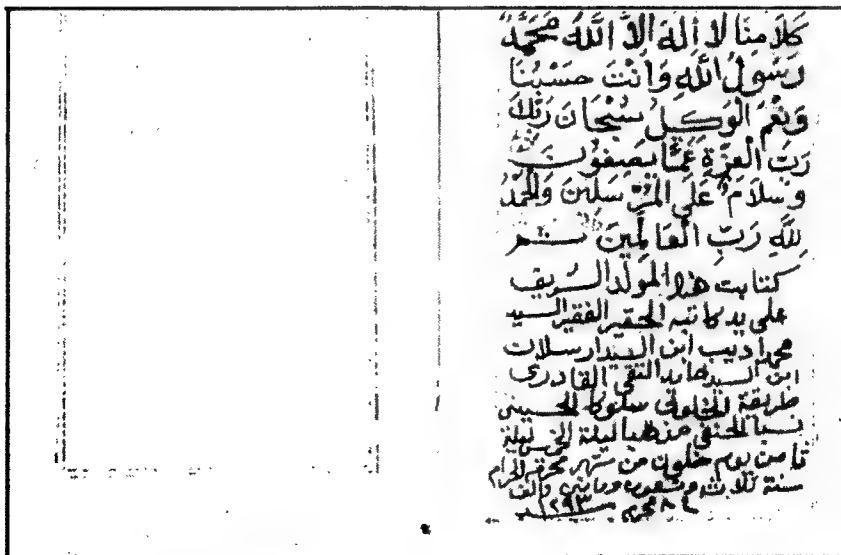 كَلَامِنَا لَا إِلَهَ إِلَّا اللَّهُ مُحَمَّدٌ
رَسُولُ اللَّهِ وَأَنْتَ حَسْبُنَا
وَنِعْمَ الْوَكِيلُ سُبْحَانَ رَبِّكَ
رَبِّ الْعِزَّةِ عَمَّا يَصِفُونَ
وَسَلَامٌ عَلَى الْمُرْسَلِينَ وَالْحَمْدُ
لِلَّهِ رَبِّ الْعَالَمِينَ تم
كتابت هذا المولد الشريف
على يد كاتبه الحقير الفقير السيد
محمد اديب ابن السيد ارسلان
ابن السيد حامد التقي القادري
طريقة الخلوتي سلوكا الحسيني
نسبا الحنفي مذهبا ليلة الخميس ليلة
ثامن يوم خلون من شهر محرم الحرام
سنة ثلاثة وتسعون ومايتين والف
٨ محرم سنة ١٢٩٣